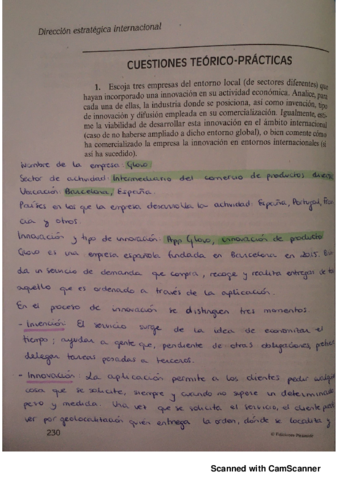 Dirección estratégica internacional
CUESTIONES TEÓRICO-PRÁCTICAS
1. Escoja tres empresas del entorno local (de sectores diferentes) que
hayan incorporado una innovación en su actividad económica. Analice, para
cada una de ellas, la industria donde se posiciona, así como invención, tipo
de innovación y difusión empleada en su comercialización. Igualmente,
me la viabilidad de desarrollar esta innovación en el ámbito internacional
(caso de no haberse ampliado a dicho entorno global), o bien comente cómo
ha comercializado la empresa la innovación en entornos internacionales (si
así ha sucedido).
Nombre de la empresa: Glovo.
Sector de actividad: Intermediario del consumo de productos
Ubicación: Barcelona, España.
Países en los que la empresa desarrolla la actividad: España, Portugal,
y otros
Innovación y tipo de innovación: App Glovo, innovación de producto
Glovo es una empresa española fundada en Barcelona en 2015.
da un servicio de demanda que compra, recoge y realiza entregas de
aquello que es ordenado a través de la aplicación.
En el proceso de innovación se distinguen tres momentos.
- Invención: El servicio surge de la idea de economizar el
tiempo; ayudar a gente que, pendiente de otras obligaciones,
delegan tareas pesadas a terceros.
- Innovación: La aplicación permite a los clientes pedir
cosa que se solicite, siempre y cuando no supere un determinado
peso y medida. Una vez que se solicita el servicio, el cliente
ver por geolocalización quién entrega la orden, dónde se localiza y
230
© Ediciones Pirámide
Scanned with CamScanner